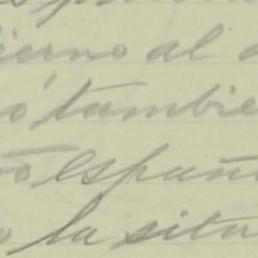 ierno al
ó tambie
españ
la situ